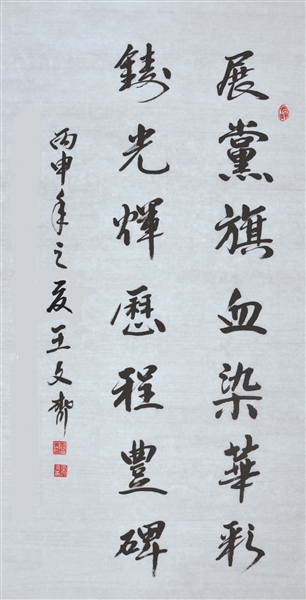 展黨旗血染華彩
鑄光輝歷程豐碑
丙申年之夏王文